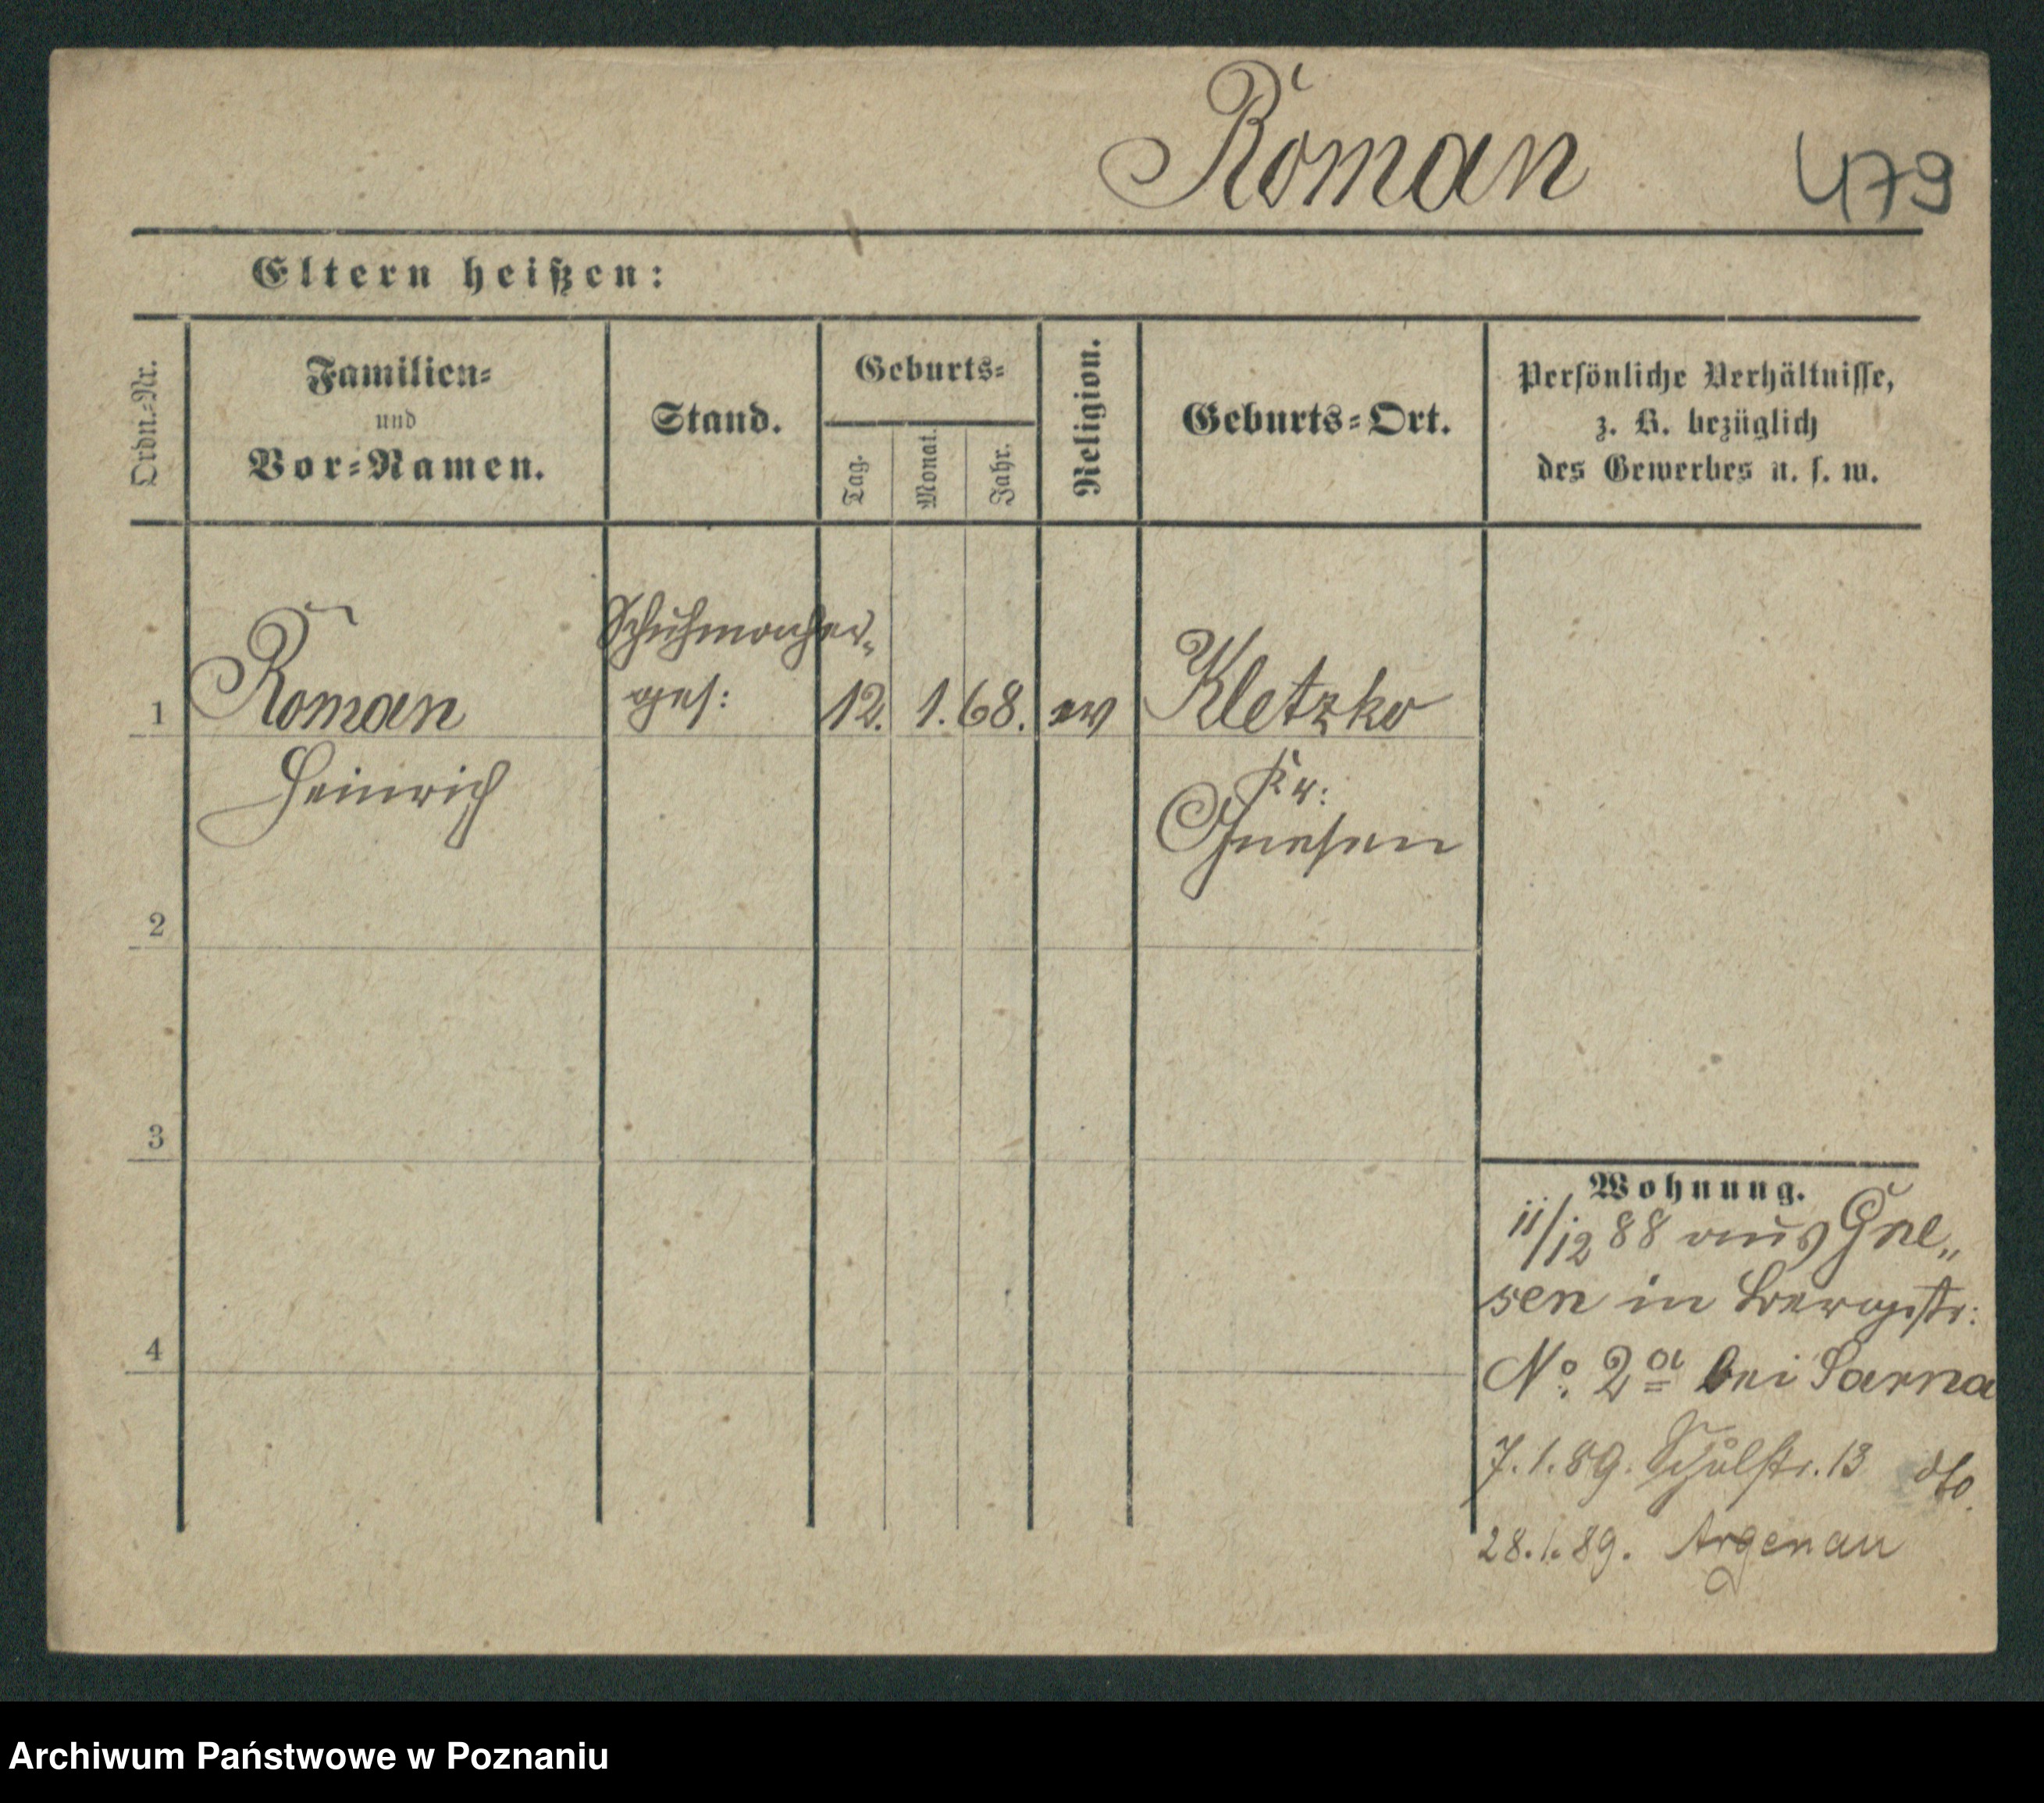 Roman
479
Eltern heißen:
Ordn.-Nr.
Familien-
und
Vor-Namen.
Stand.
Geburts-
Tag.
Monat.
Jahr.
Religion.
Geburts-Ort.
Persönliche Verhältnisse,
z. B. bezüglich
des Gewerbes u. s. w.
Schuhmacher-
1 Roman ges: 12. 1. 68. ev Kletzko
Heinrich Kr:
Gnesen
2
3
4
Wohnung.
11/12 88 aus Gne„
sen in Bergstr:
No: 2a bei Sarna
7.1.89. Schulstr. 13 dto.
28.1.89. Argenau
Archiwum Państwowe w Poznaniu